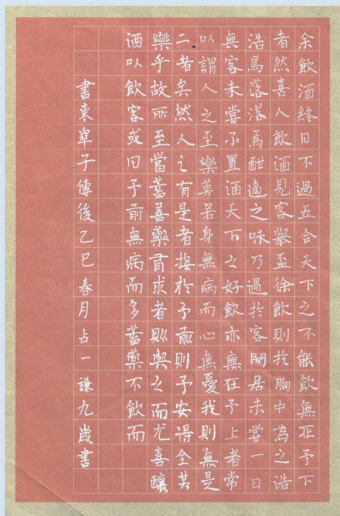 余飲酒終日不過五合天下之不能飲無在予下
者然喜人飲酒見客舉盃徐飲則於胸中為之浩
浩焉落落焉酣適之味乃過於客閒居未嘗一日
無客未嘗不置酒天下之好飲亦無在予上者常
以謂人之至樂莫若身無病而心無憂我則無是
二者矣然人之有是者接於予前則予安得全其
樂乎故所至當蓄善藥有求者則與之而尤喜釀
酒以飲客或曰予前無病而多蓄藥不飲而
書東皋子傳後乙巳春月占一謙九歲書